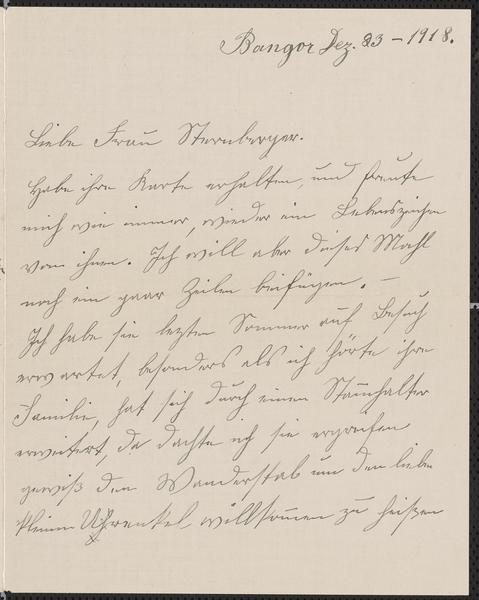 Bangor Dez. 23 – 1918.
Liebe Frau Sternberger.
Habe ihre Karte erhalten, und freute
mich wie immer, wieder ein Lebenszeichen
von ihnen. Ich will aber dieses Mahl
noch ein paar Zeilen beifügen. –
Ich habe sie letzten Sommer auf Besuch
erwartet, besonders als ich hörte ihre
Familie, hat sich durch einen Stammhalter
erweitert, da dachte ich sie ergreifen
gewiß den Wanderstab um den liebe
kleinen Uhrenkel willkommen zu heißen